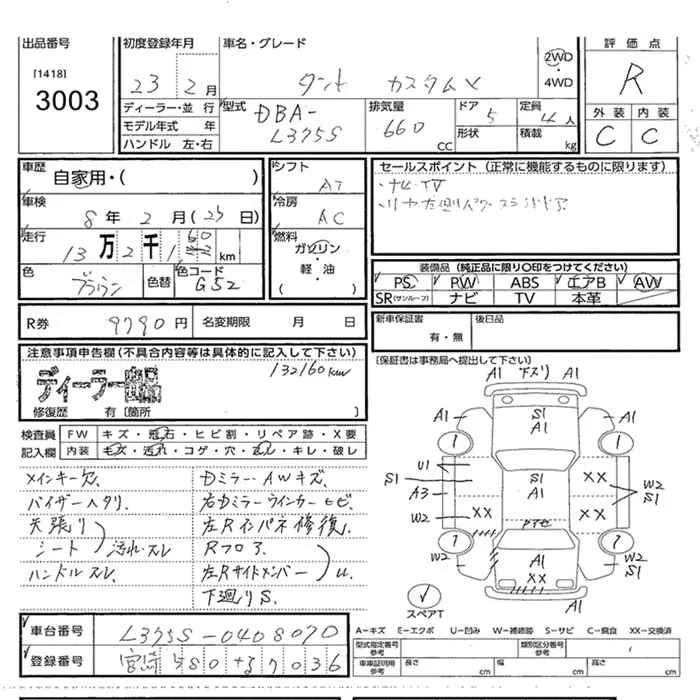 出品番号 初度登録年月 車名・グレード 評価点
[1418]
3003
23年2月 タント カスタムX 2WD・4WD R
ディーラー・並行 型式 DBA-L375S 排気量 660 CC ドア 5 定員 4人
モデル年式 年 形状 積載 kg
ハンドル 左・右
外装 内装
C C
車歴 自家用・( )
シフト AT
車検 8年2月(25日)
冷房 AC
走行 13万2千1 km
燃料 ガソリン・軽油 ( )
色 ブラウン 色替 色コード G52
セールスポイント (正常に機能するものに限ります)
・ナビ・TV
装備品 (純正品に限り○印をつけてください)
PS PW ABS エアB AW
SR(サンルーフ) ナビ TV 本革
R券 9790円 名変期限 月 日
新車保証書 有・無 後日品
(保証書は事務局へ提出して下さい)
注意事項申告欄(不具合内容等は具体的に記入して下さい)
ディーラー 132160km
修復歴 有〔箇所 〕
検査員 FW キズ・飛石・ヒビ割・リペア跡・X要
記入欄 内装 キズ・汚れ・コゲ・穴・スレ・キレ・破レ
メインキー欠. Dミラー AWキズ.
バイザーヘタリ 右Dミラーウインカーヒビ
天張り 左Rインパネ修復.
シート 汚れ・スレ Rフロア
ハンドルスレ. 左Rサイドメンバー U.
下廻りS.
A1 下ズリ A1
A1
S1
A1 A1
U1 S1 XX
S1 W2
A3 A1 S1
W2 XX XX
W2 A1 W2
XX S1
スペアT
車台番号 L375S-0408070
登録番号 宮崎 580 す 7036
A−キズ E−エクボ U−凹み W−補修跡 S−サビ C−腐食 XX−交換済
型式指定番号 参考 類別区分番号 参考
車庫証明用 参考 長さ cm 幅 cm 高さ cm